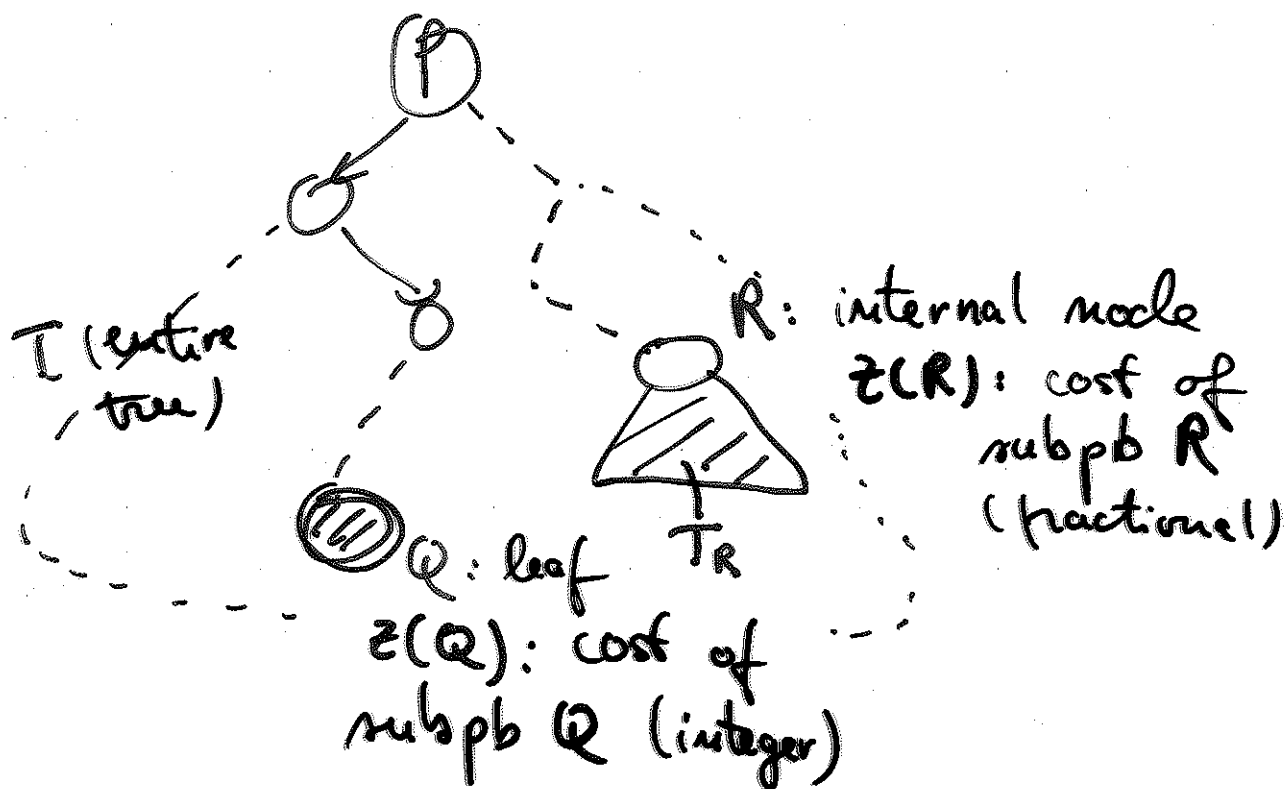 P
T (entire
tree)
R: internal node
z(R): cost of
subpb R
(fractional)
T_R
Q: leaf
z(Q): cost of
subpb Q (integer)